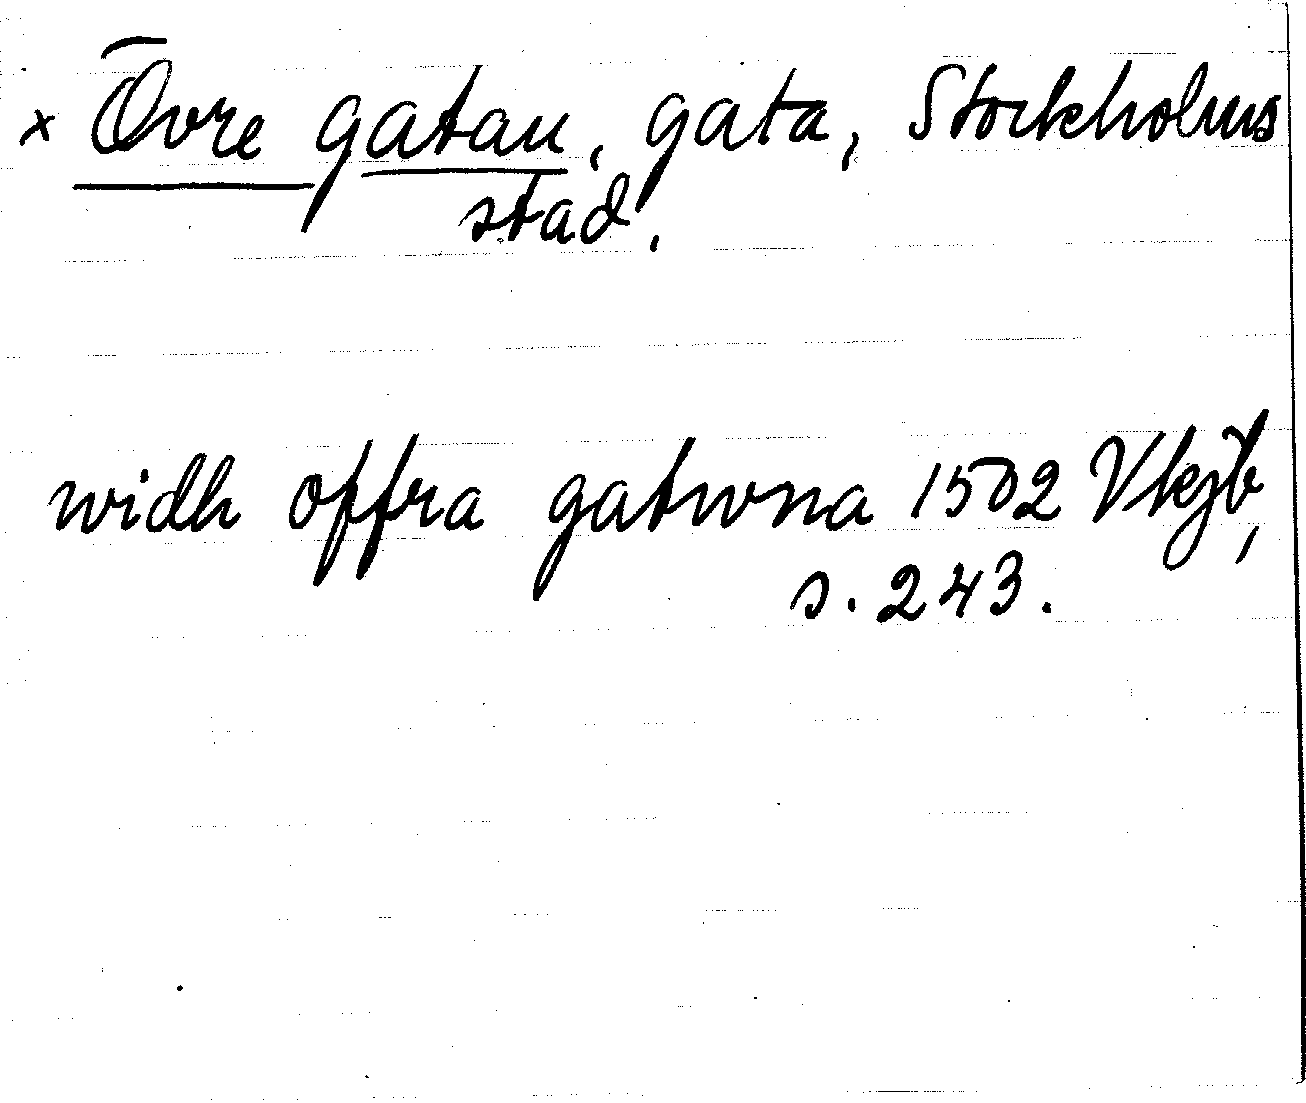 × Övre gatan, gata, Stockholms
stad.
widh offra gatwna 1502 Vkjb,
s. 243.